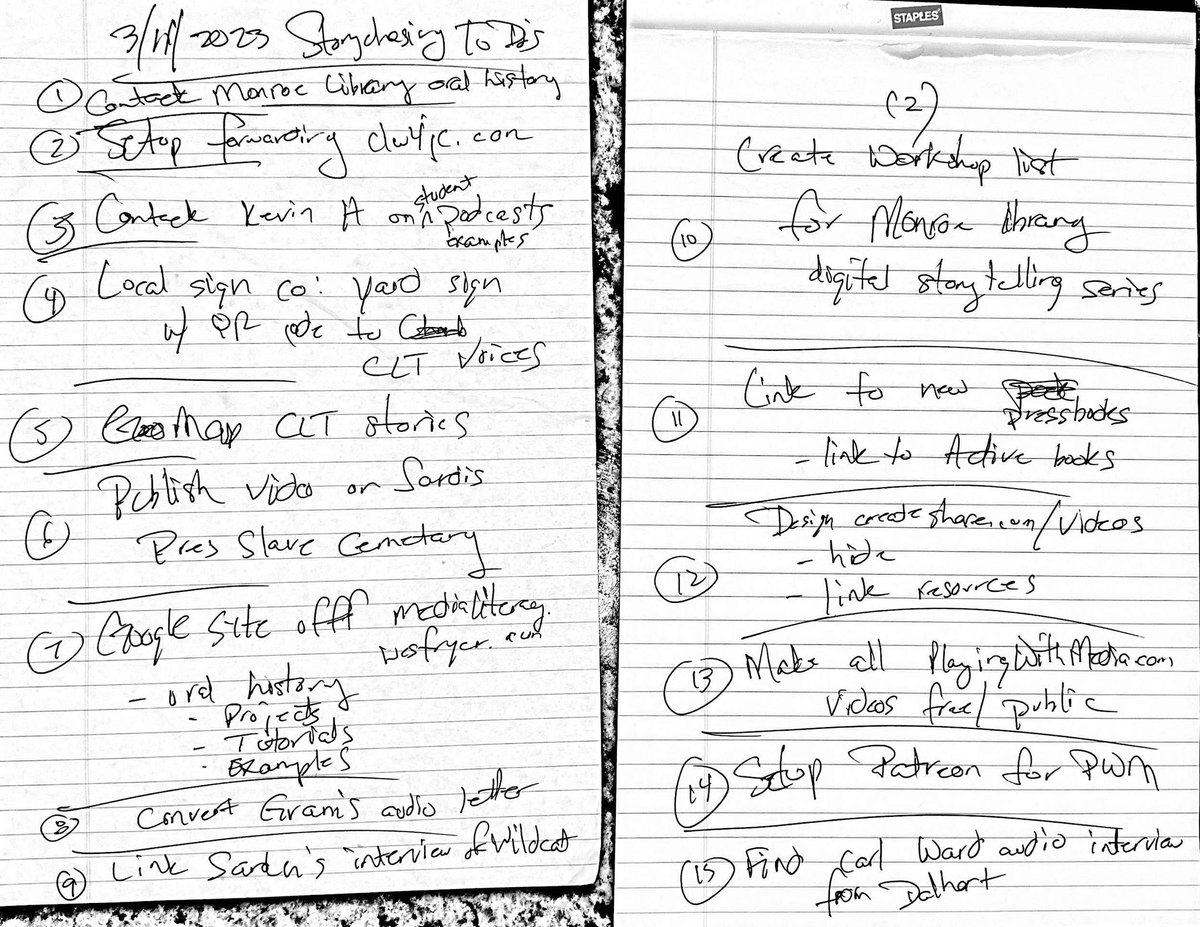 3/11/2023 Storychasing To Do's
① Contact Monroe Library oral history
② Setup forwarding dw4jc.com
③ Contact Kevin H on student Podcasts
examples
④ Local sign co: yard sign
w/ QR code to
CLT Voices
⑤ GeoMap CLT stories
⑥ Publish video on Sardis
Pres Slave Cemetary
⑦ Google Site off medialiteracy.
wesfryer.com
- oral history
- Projects
- Tutorials
- Examples
⑧ Convert Gram's audio letter
⑨ Link Sarah's interview of Wildcat
STAPLES
(2)
⑩ Create Workshop list
for Monroe library
digital storytelling series
⑪ Link to new
pressbooks
- link to Active books
⑫ Design createshare.com/videos
- hide
- link resources
⑬ Make all PlayingWithMedia.com
videos free/public
⑭ Setup Patreon for PWM
⑮ Find Carl Ward audio interview
from Dalhart